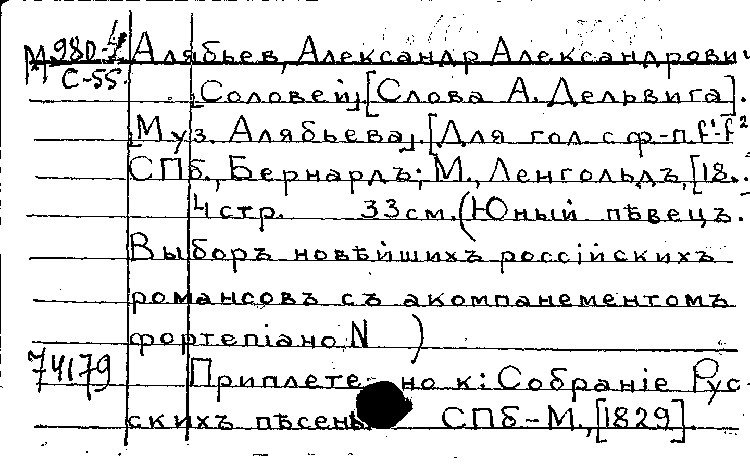 М 980-1 Алябьев, Александр Александрович
С-55 [Соловей] [Слова А. Дельвига].
[Муз. Алябьева]. [Для гол. с ф-п. f¹-f²
СПб., Бернардъ; М., Ленгольдъ, [18..
4 стр. 33 см. (Юный пѣвецъ.
Выборъ новѣйшихъ россійскихъ
романсовъ съ акомпанементомъ
фортепіано, N )
74179 Приплете- но к: Собраніе Рус-
скихъ пѣсень СПб-М., [1829].